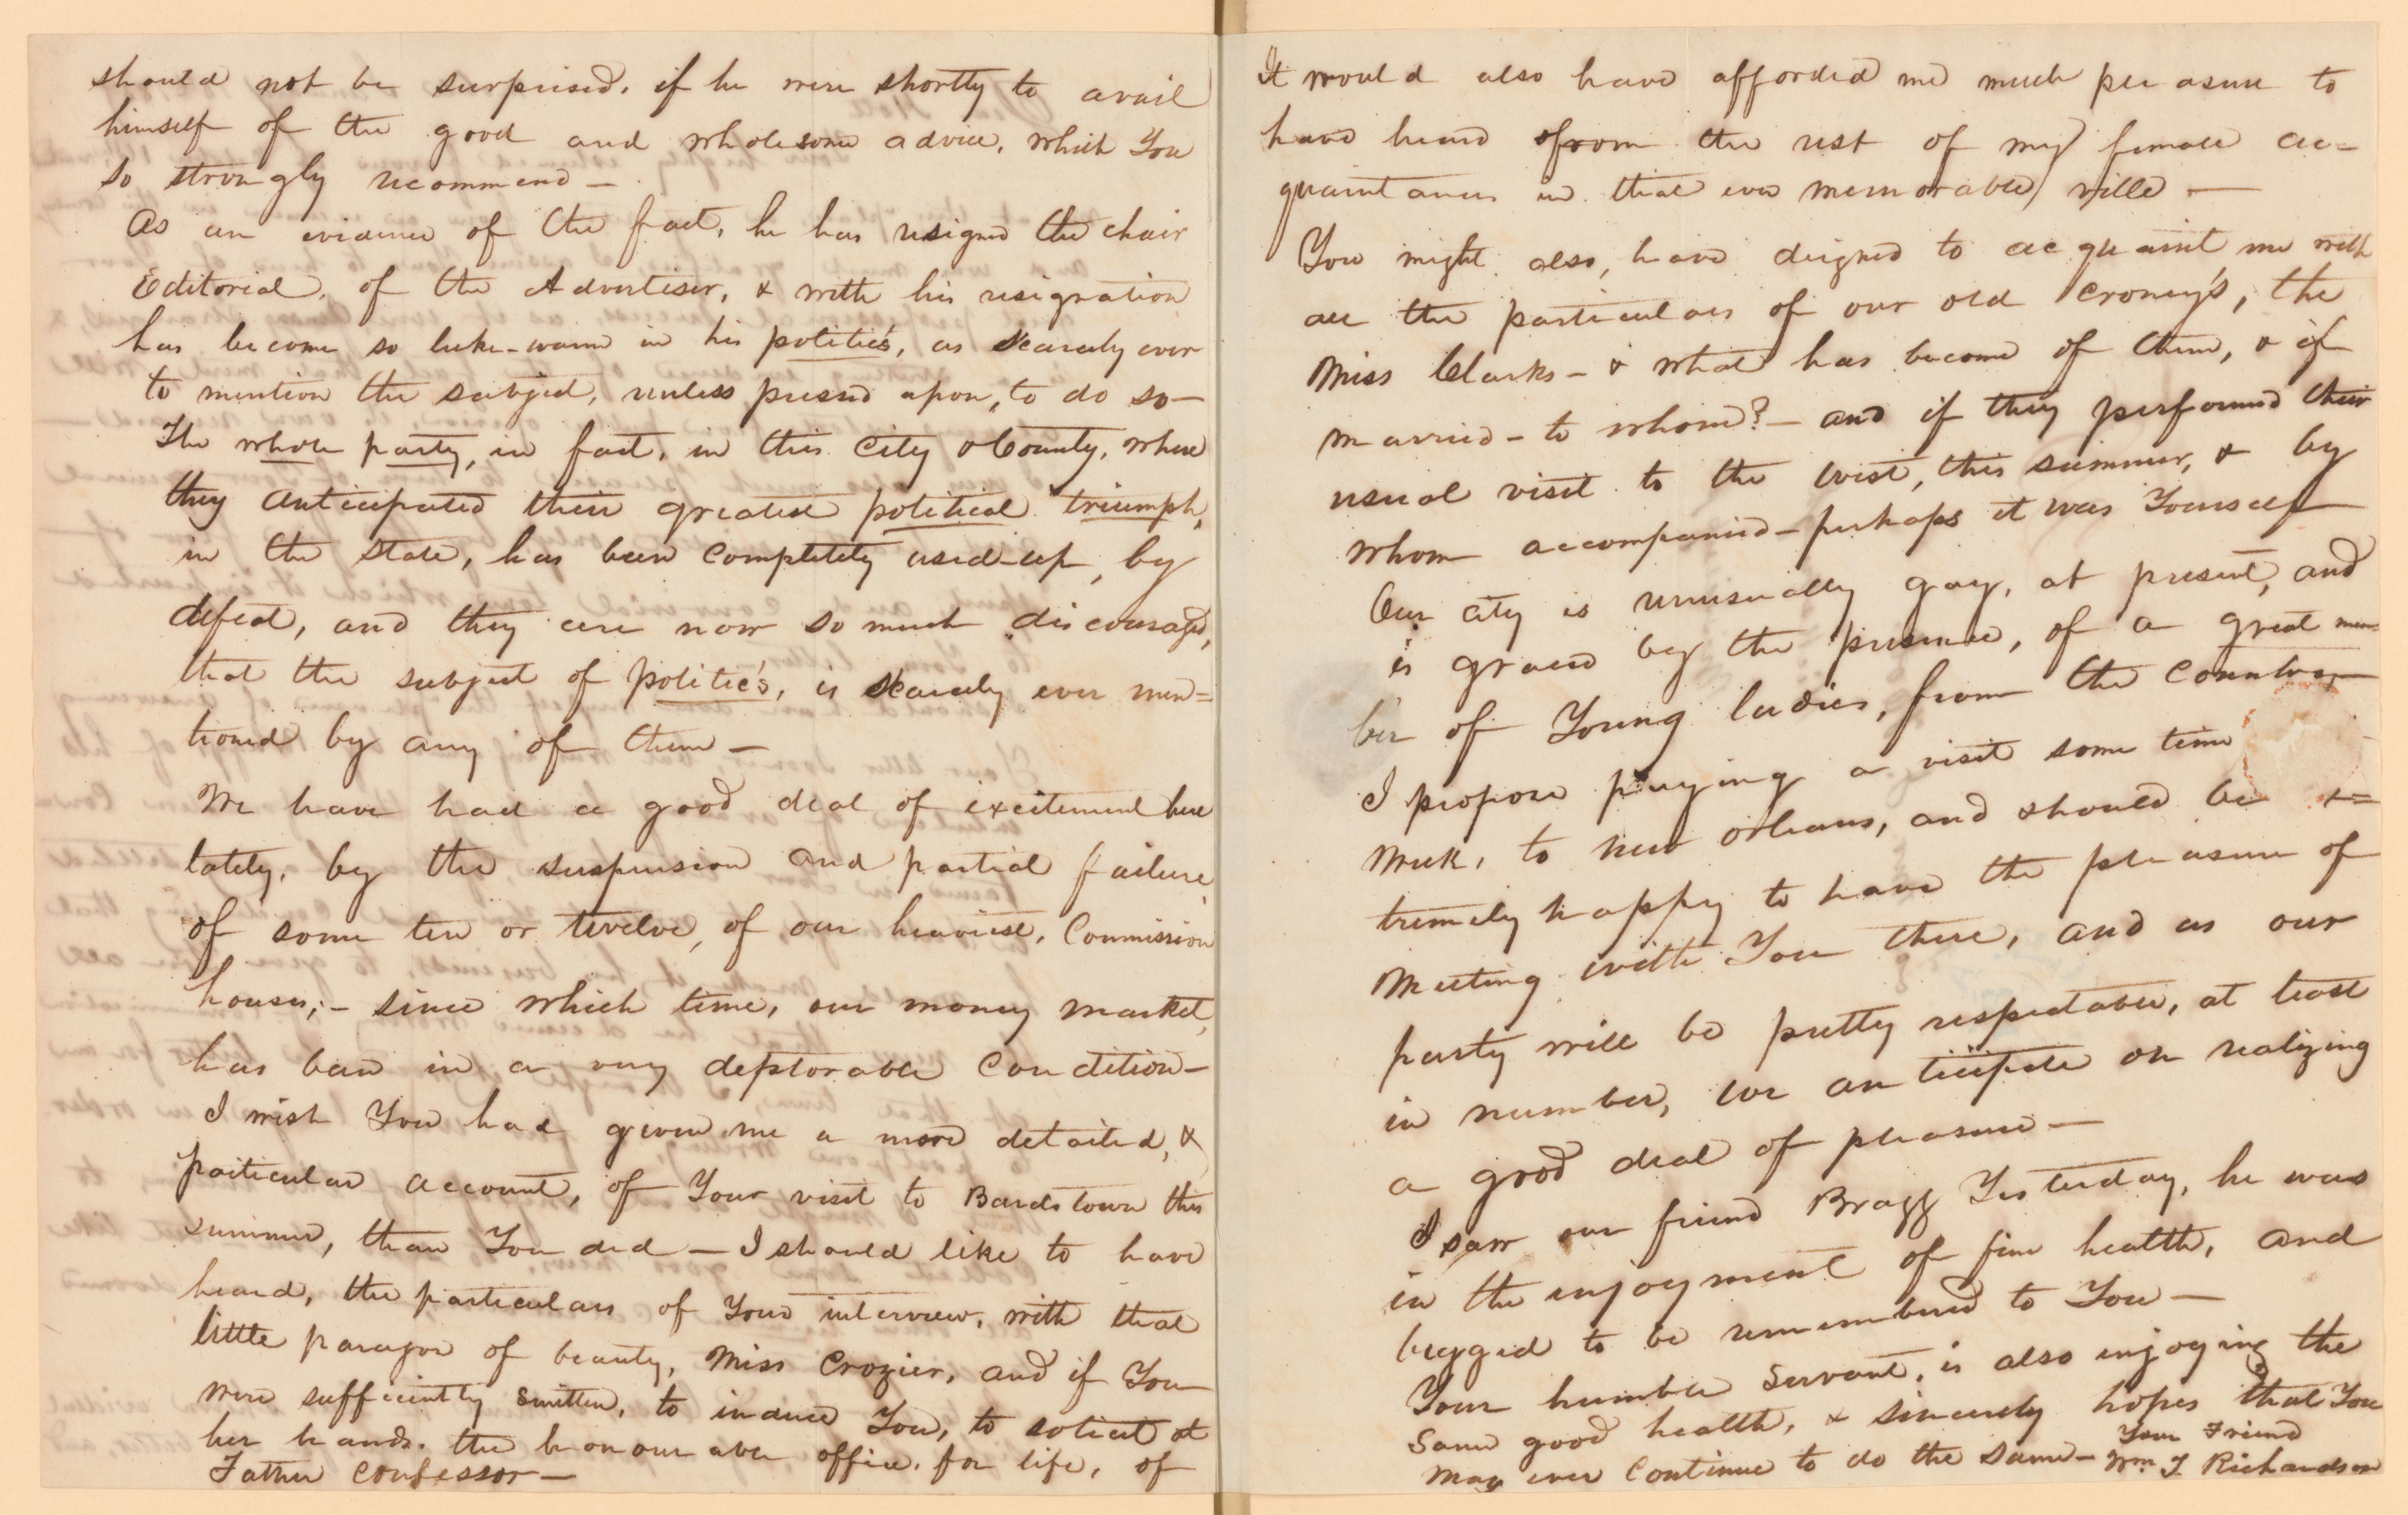 should not be surprised, if he were shortly to avail
himself of the good and wholesome advice, which You
so strongly recommend —
As an evidence of the fact, he has resigned the chair
Editorial, of the Advertiser, & with his resignation
has become so luke-warm in his politic's, as scarcely ever
to mention the subject, unless pressed upon, to do so —
The whole party, in fact, in this City & County, where
they anticipated their greatest political triumph,
in the State, has been completely used-up, by
defeat, and they are now so much discouraged,
that the subject of politic's, is scarcely ever men=
tioned by any of them —
We have had a good deal of excitement here
lately, by the suspension and partial failure,
of some ten or twelve, of our heaviest, Commission
houses; — since which time, our money market,
has been in a very deplorable condition —
I wish You had given me a more detailed, &
particular account, of Your visit to Bardstown this
summer, than You did — I should like to have
heard, the particulars of Your interview, with that
little paragon of beauty, Miss Crozier, and if You
were sufficiently smitten, to induce You, to solicit at
her hands. the honourable office, for life, of
Father Confessor —
It would also have afforded me much pleasure to
have heard from the rest of my female ac=
quaintances in that ever memorable ville —
You might also, have deigned to acquaint me with
all the particulars of our old croney's, the
Miss Clarks — & what has become of them, & if
married — to whom? — and if they performed their
usual visit to the West, this summer, & by
whom accompanied — perhaps it was Yourself
Our city is unusually gay, at present, and
is graced by the presence, of a great num=
ber of Young ladies, from the Country —
I propose paying a visit some time
week, to New Orleans, and should be ex=
tremely happy to have the pleasure of
Meeting with You there, and as our
party will be pretty respectable, at least
in number, we anticiipate on realizing
a good deal of pleasure —
I saw our friend Bragg Yesterday, he was
in the enjoyment of fine health, and
begged to be remembered to You —
Your humble Servant, is also enjoying the
same good health, & sincerely hopes that You
may ever continue to do the same — Your Friend
Wm. T. Richardson